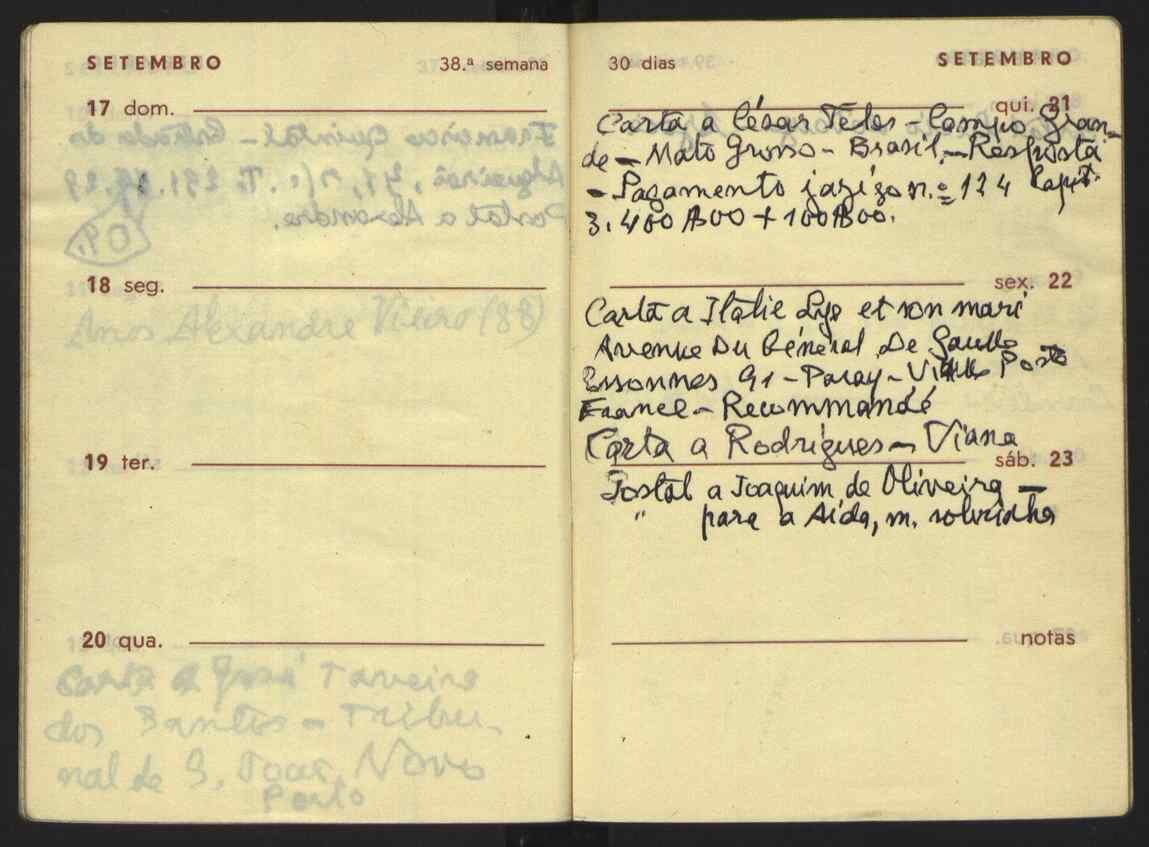 SETEMBRO 38.ª semana
17 dom.
18 seg.
Anos Alexandre Vieira (88)
19 ter.
20 qua.
Carta a José Taveira
dos Santos - Tribu-
nal de S. João Novo
Porto
30 dias SETEMBRO
qui. 21
Carta a César Teles - Campo Gran-
de - Mato Grosso - Brasil - Resposta
- Pagamento jazigo n.º 124 Capit.
3.400$00 + 100$00.
sex. 22
Carta a Italie Lye et son mari
Avenue Du Général De Gaulle
Essonnes 91 - Paray - Vieille Poste
France - Recommandé
Carta a Rodrigues - Viana
sáb. 23
Postal a Joaquim de Oliveira -
" para a Aida, m. sobrinha
notas